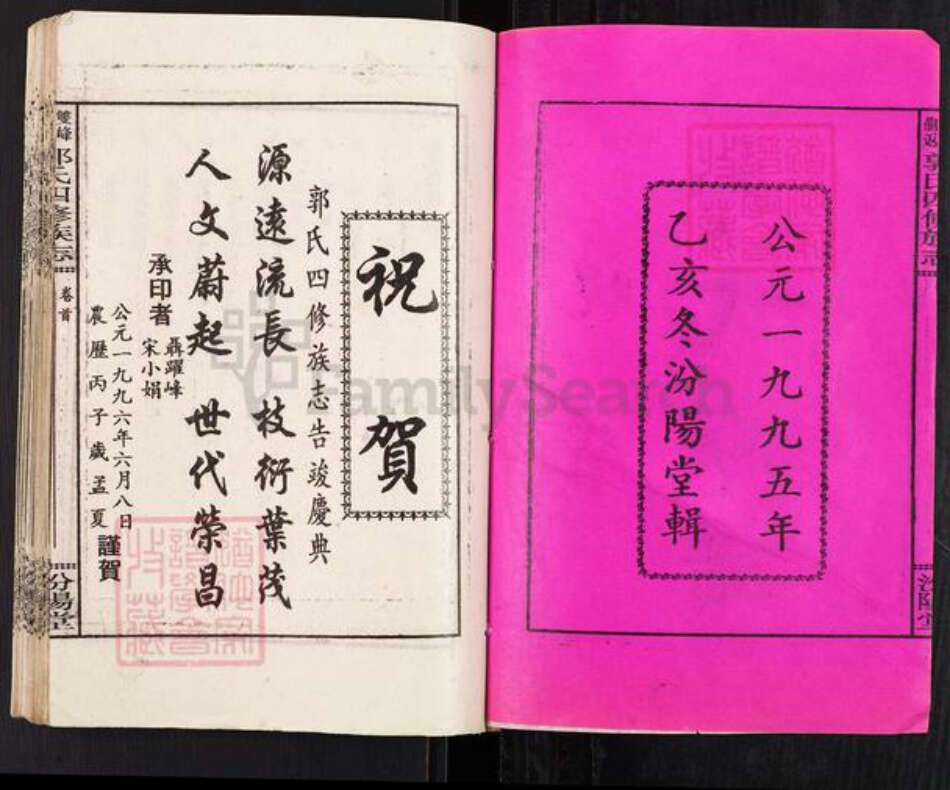 公元一九九五年
乙亥冬汾陽堂輯
祝賀
郭氏四修族志告竣慶典
源遠流長 枝衍葉茂
人文蔚起 世代榮昌
承印者
聶躍峰
宋小娟
公元一九九六年六月八日
農歷丙子歲孟夏
謹賀
雙峰
郭氏四修族志
卷首
汾陽堂
郭氏四修族志
汾陽堂
FamilySearch